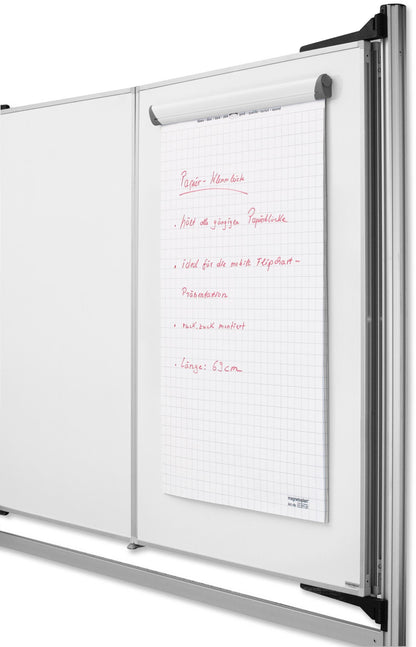 Papier-Klemmleiste
• hält alle gängigen Papierblöcke
• ideal für die mobile Flipchart-
Präsentation
• ruck, zuck montiert
• Länge: 63cm
magnetoplan